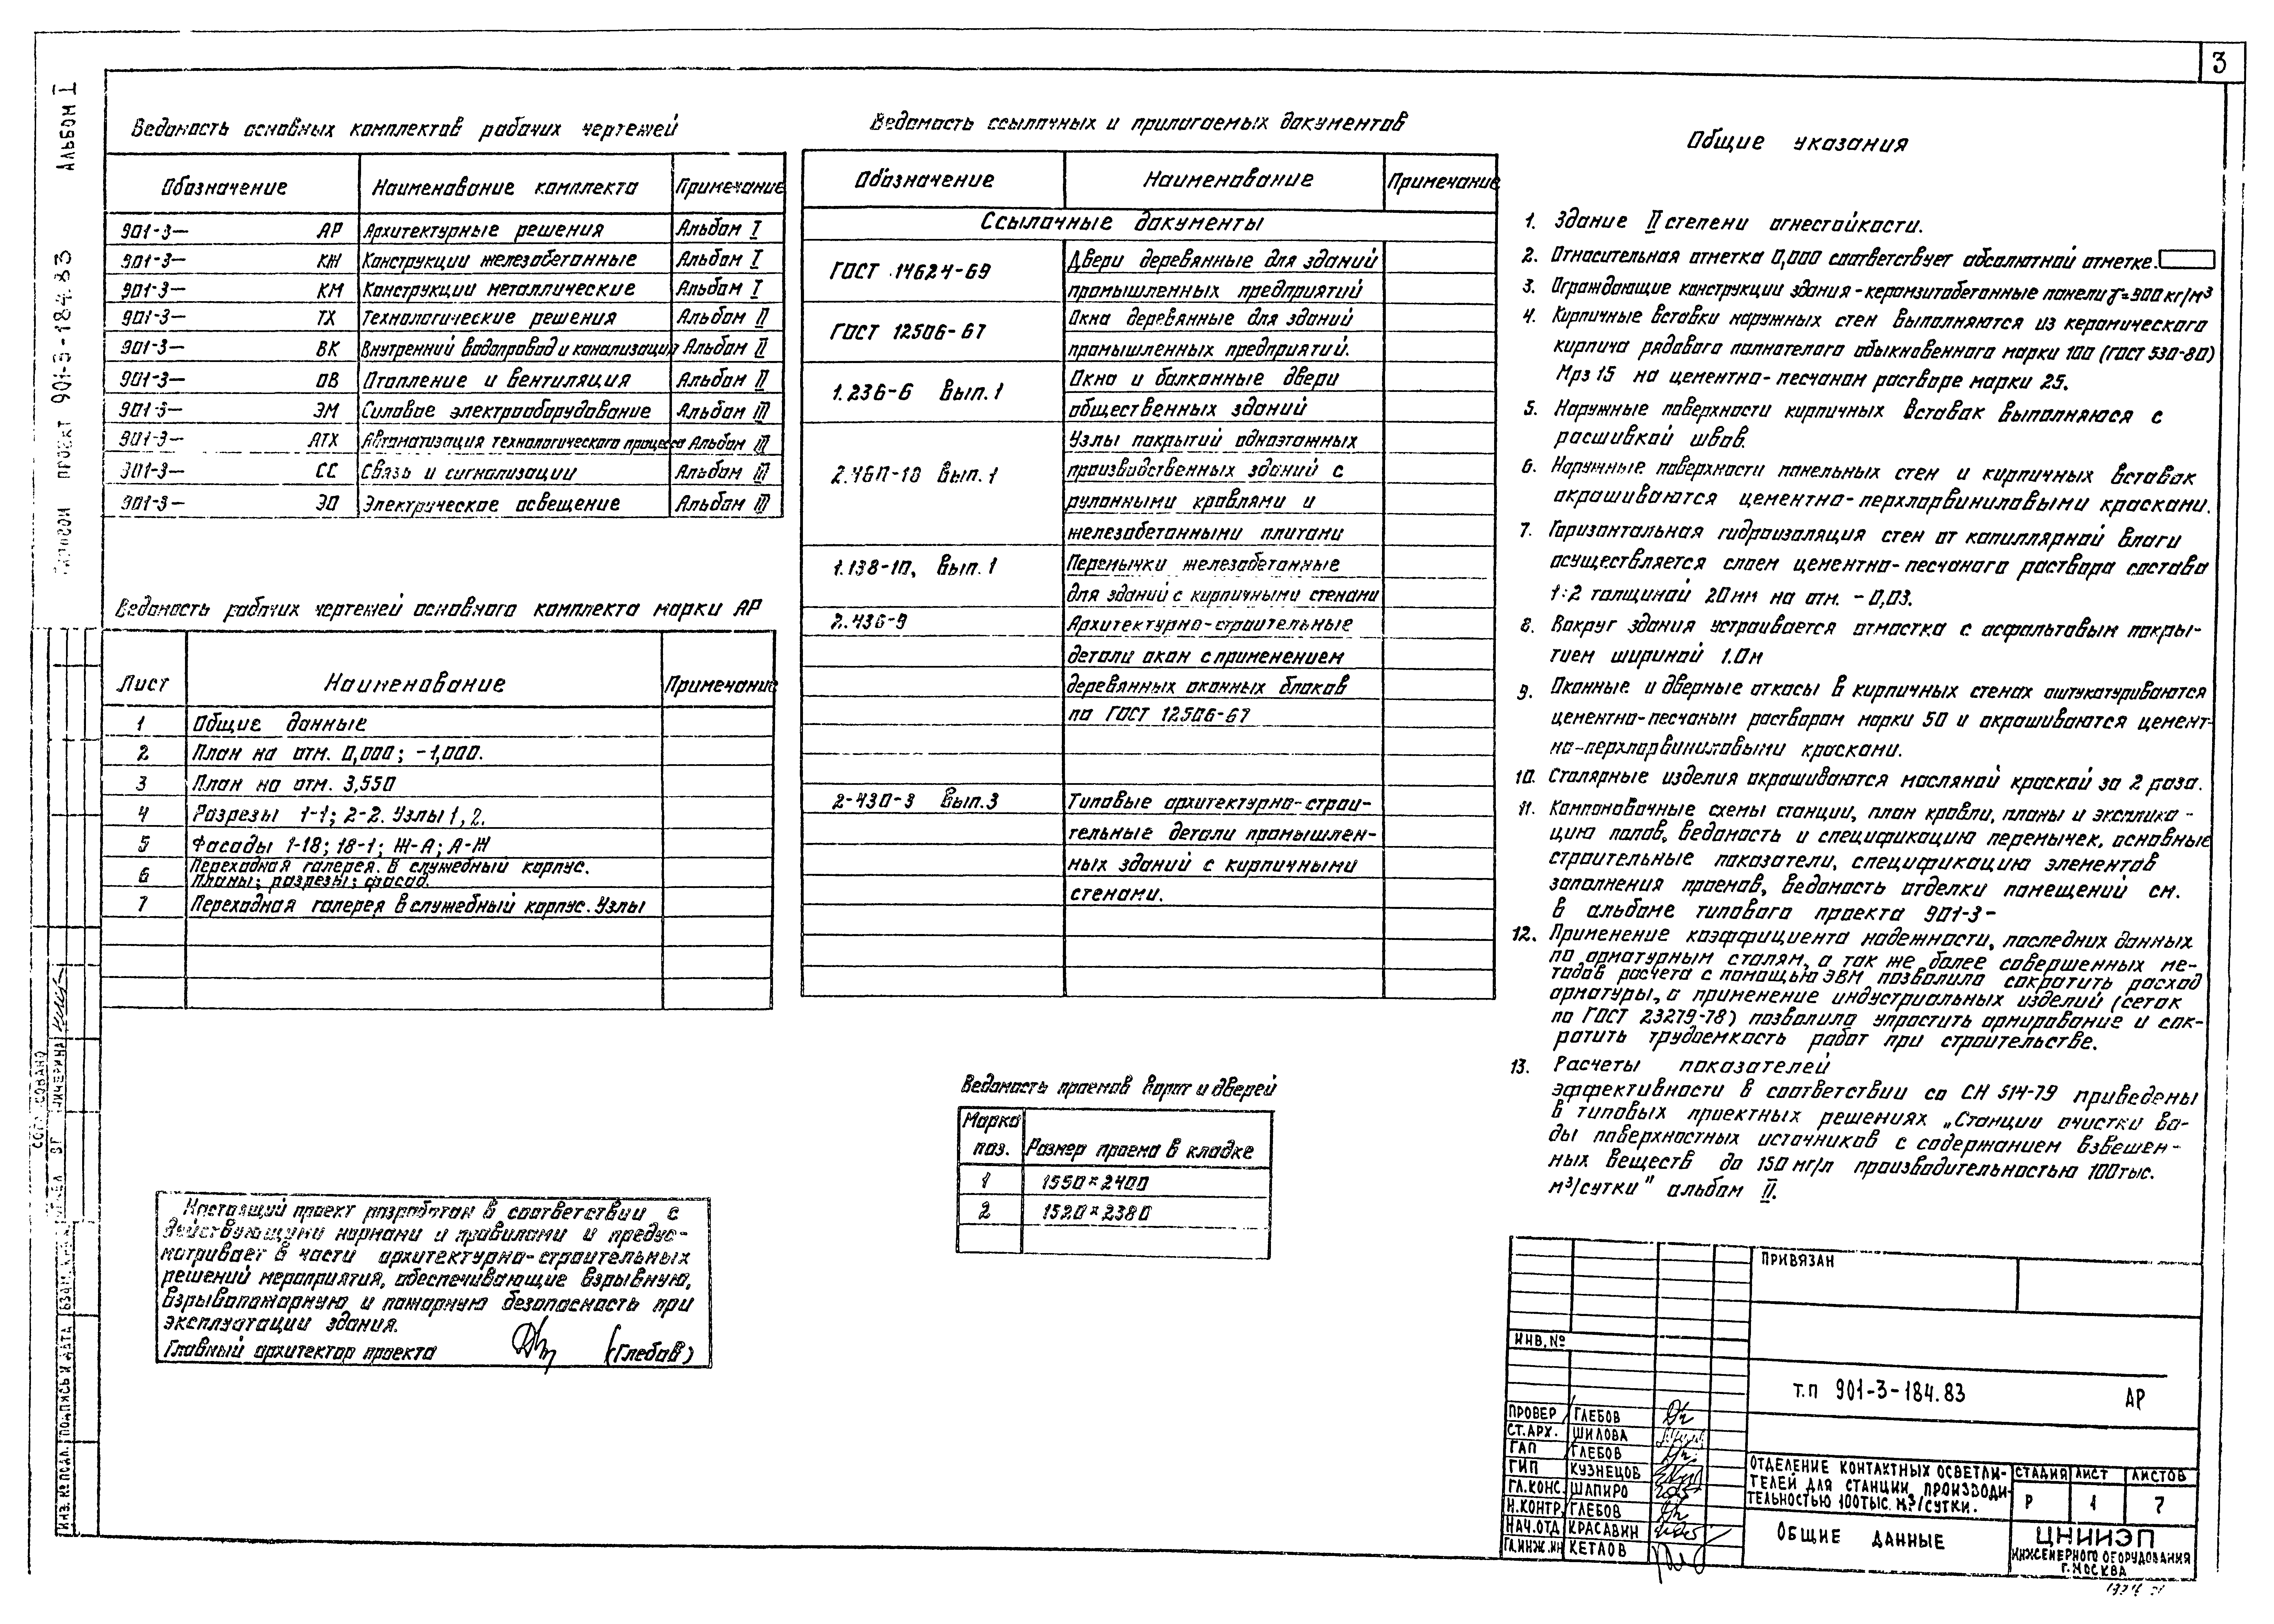 3
Альбом I
проект 901-3-184.83
Ведомость основных комплектов рабочих чертежей
Обозначение Наименование комплекта Примечание
901-3— АР Архитектурные решения Альбом I
901-3— КЖ Конструкции железобетонные Альбом I
901-3— КМ Конструкции металлические Альбом I
901-3— ТХ Технологические решения Альбом II
901-3— ВК Внутренний водопровод и канализация Альбом II
901-3— ОВ Отопление и вентиляция Альбом II
901-3— ЭМ Силовое электрооборудование Альбом III
901-3— АТХ Автоматизация технологического процесса Альбом III
901-3— СС Связь и сигнализации Альбом III
901-3— ЭО Электрическое освещение Альбом III
Ведомость рабочих чертежей основного комплекта марки АР
Лист Наименование Примечание
1 Общие данные
2 План на отм. 0,000; -1,000.
3 План на отм. 3,550
4 Разрезы 1-1; 2-2. Узлы 1, 2.
5 Фасады 1-18; 18-1; Ж-А; А-Ж
6 Переходная галерея. В служебный корпус.
Планы; разрезы; фасад.
7 Переходная галерея в служебный корпус. Узлы
Настоящий проект разработан в соответствии с
действующими нормами и правилами и предус-
матривает в части архитектурно-строительных
решений мероприятия, обеспечивающие взрывную,
взрывопожарную и пожарную безопасность при
эксплуатации здания.
Главный архитектор проекта (Глебов)
Ведомость ссылочных и прилагаемых документов
Обозначение Наименование Примечание
Ссылочные документы
ГОСТ 14624-69 Двери деревянные для зданий
промышленных предприятий
ГОСТ 12506-67 Окна деревянные для зданий
промышленных предприятий.
1.236-6 Вып.1 Окна и балконные двери
общественных зданий
2.460-10 Вып.1 Узлы покрытий одноэтажных
производственных зданий с
рулонными кровлями и
железобетонными плитами
1.138-10, Вып.1 Перемычки железобетонные
для зданий с кирпичными стенами
2.436-9 Архитектурно-строительные
детали окон с применением
деревянных оконных блоков
по ГОСТ 12506-67
2-430-3 Вып.3 Типовые архитектурно-строи-
тельные детали промышлен-
ных зданий с кирпичными
стенами.
Ведомость проемов ворот и дверей
Марка
поз. Размер проема в кладке
1 1550×2400
2 1520×2380
Общие указания
1. Здание II степени огнестойкости.
2. Относительная отметка 0,000 соответствует абсолютной отметке.
3. Ограждающие конструкции здания-керамзитобетонные панели γ=900 кг/м³
4. Кирпичные вставки наружных стен выполняются из керамического
кирпича рядового полнотелого обыкновенного марки 100 (ГОСТ 530-80)
Мрз 15 на цементно-песчаном растворе марки 25.
5. Наружные поверхности кирпичных вставок выполняюся с
расшивкой швов.
6. Наружные поверхности панельных стен и кирпичных вставок
окрашиваются цементно-перхлорвиниловыми красками.
7. Горизонтальная гидроизоляция стен от капиллярной влаги
осуществляется слоем цементно-песчаного раствора состава
1:2 толщиной 20мм на отм. -0,03.
8. Вокруг здания устраивается отмостка с асфальтовым покры-
тием шириной 1.0м
9. Оконные и дверные откосы в кирпичных стенах оштукатуриваются
цементно-песчаным раствором марки 50 и окрашиваются цемент-
но-перхлорвиниловыми красками.
10. Столярные изделия окрашиваются масляной краской за 2 раза.
11. Компоновочные схемы станции, план кровли, планы и эксплика-
цию полов, ведомость и спецификацию перемычек, основные
строительные показатели, спецификацию элементов
заполнения проемов, ведомость отделки помещений см.
в альбоме типового проекта 901-3-
12. Применение коэффициента надежности, последних данных
по арматурным сталям, а так же более совершенных ме-
тодов расчета с помощью ЭВМ позволило сократить расход
арматуры, а применение индустриальных изделий (сеток
по ГОСТ 23279-78) позволило упростить армирование и сок-
ратить трудоемкость работ при строительстве.
13. Расчеты показателей
эффективности в соответствии со СН 514-79 приведены
в типовых проектных решениях „Станции очистки во-
ды поверхностных источников с содержанием взвешен-
ных веществ до 150 мг/л производительностью 100тыс.
м³/сутки" альбом II.
ПРИВЯЗАН
ИНВ.№
Т.П 901-3-184.83 АР
ПРОВЕР ГЛЕБОВ
СТ.АРХ. ШИЛОВА
ГАП ГЛЕБОВ
ГИП КУЗНЕЦОВ
ГЛ.КОНС. ШАПИРО
Н.КОНТР. ГЛЕБОВ
НАЧ.ОТД КРАСАВИН
ГЛ.ИНЖ.ИН КЕТЛОВ
ОТДЕЛЕНИЕ КОНТАКТНЫХ ОСВЕТЛИ-
ТЕЛЕЙ ДЛЯ СТАНЦИИ ПРОИЗВОДИ-
ТЕЛЬНОСТЬЮ 100ТЫС. М³/СУТКИ.
СТАДИЯ ЛИСТ ЛИСТОВ
Р 1 7
ОБЩИЕ ДАННЫЕ
ЦНИИЭП
ИНЖЕНЕРНОГО ОБОРУДОВАНИЯ
Г.МОСКВА
СОГЛАСОВАНО
ИНВ.№ ПОДЛ. ПОДПИСЬ И ДАТА ВЗАМ.